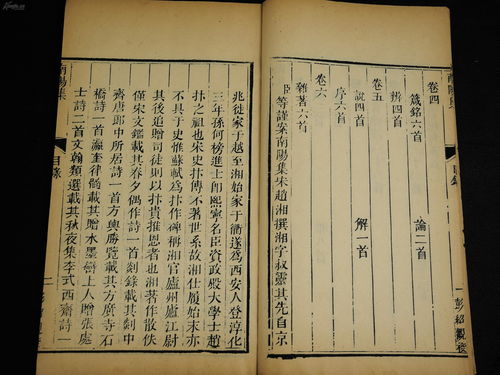 卷四
箴銘六首 論二首
辨四首
卷五
說四首 解一首
序六首
卷六
雜著六首
臣等謹案南陽集宋趙湘撰湘字叔靈其先自京
兆徙家于越至湘始家于衢遂爲西安人登淳化
三年孫何榜進士郎熙寧名臣資政殿大學士趙
抃之祖也宋史抃傳不著世系故湘仕履始末亦
不具于史惟蘇軾爲抃作碑稱湘官廬州廬江尉
其後追贈司徒則以抃貴推恩者也湘著作散佚
僅宋文鑑載其春夕偶作詩一首剡錄載其剡中
齊唐郎中所居詩一首方輿勝覽載其方廣寺石
橋詩一首瀛奎律髓載其贈水墨巒上人贈張處
士詩二首文翰類選載其秋夜集李式西齋詩一
南陽集 目錄